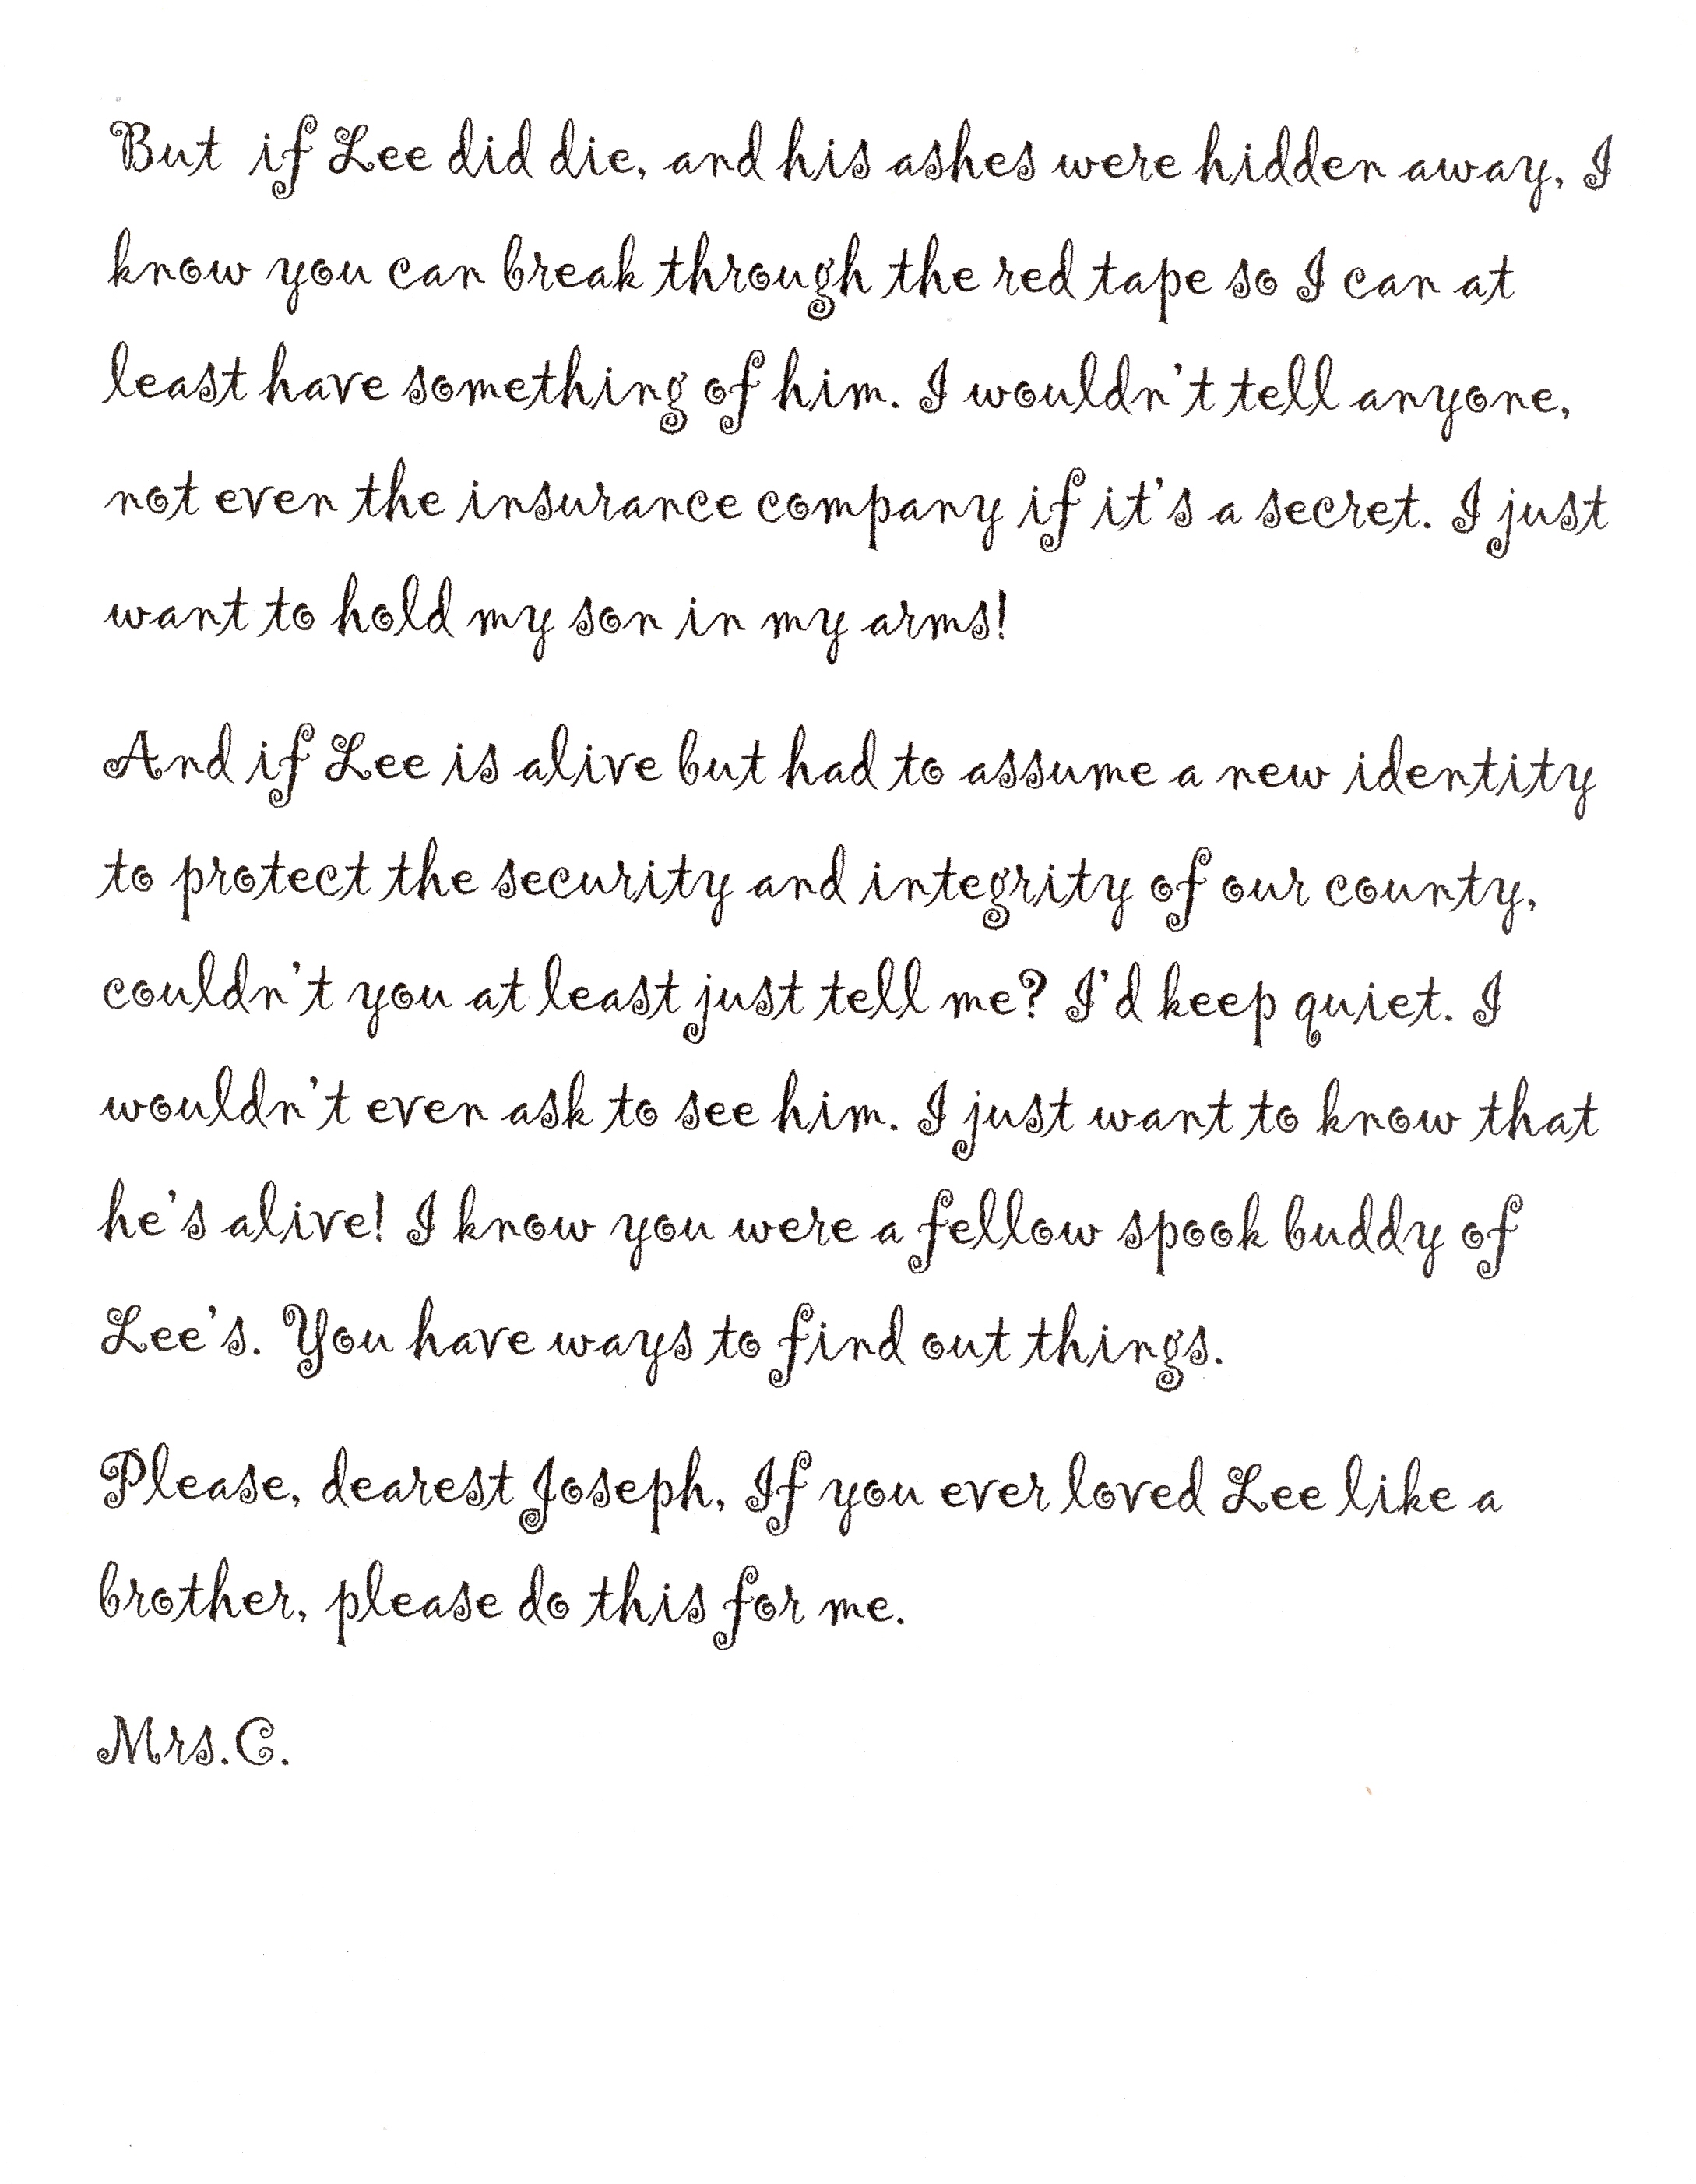 But if Lee did die, and his ashes were hidden away, I
know you can break through the red tape so I can at
least have something of him. I wouldn't tell anyone,
not even the insurance company if it's a secret. I just
want to hold my son in my arms!
And if Lee is alive but had to assume a new identity
to protect the security and integrity of our county,
couldn't you at least just tell me? I'd keep quiet. I
wouldn't even ask to see him. I just want to know that
he's alive! I know you were a fellow spook buddy of
Lee's. You have ways to find out things.
Please, dearest Joseph, If you ever loved Lee like a
brother, please do this for me.
Mrs. C.